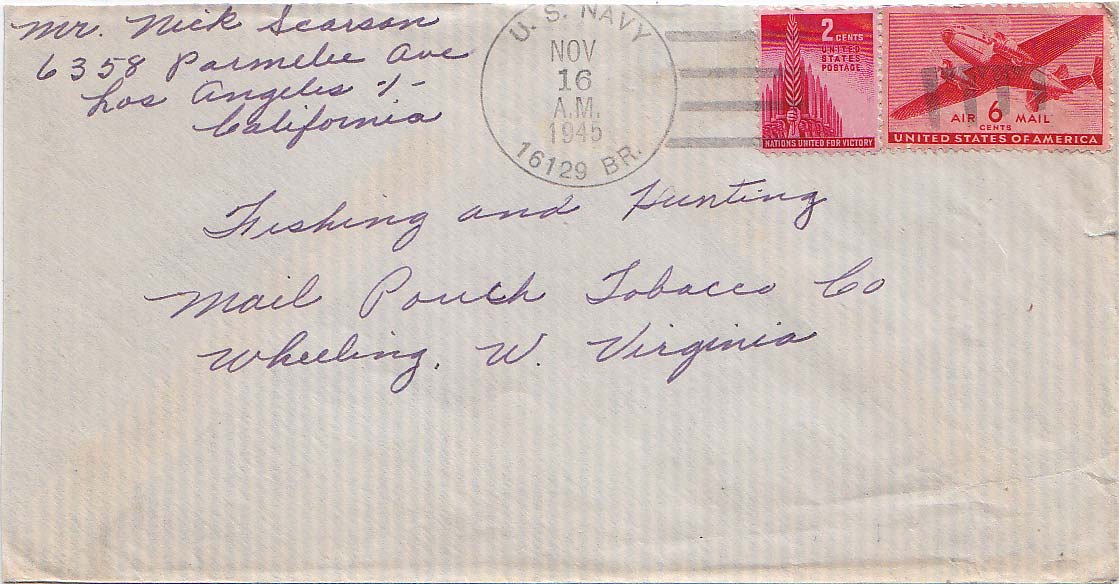 Mr. Nick Scarson
6358 Parmelee Ave
Los Angeles 1-
California
U. S. NAVY
NOV
16
A.M.
1945
16129 BR.
2 CENTS
UNITED
STATES
POSTAGE
NATIONS UNITED FOR VICTORY
AIR 6 MAIL
CENTS
UNITED STATES OF AMERICA
Fishing and Hunting
Mail Pouch Tobacco Co
Wheeling, W. Virginia